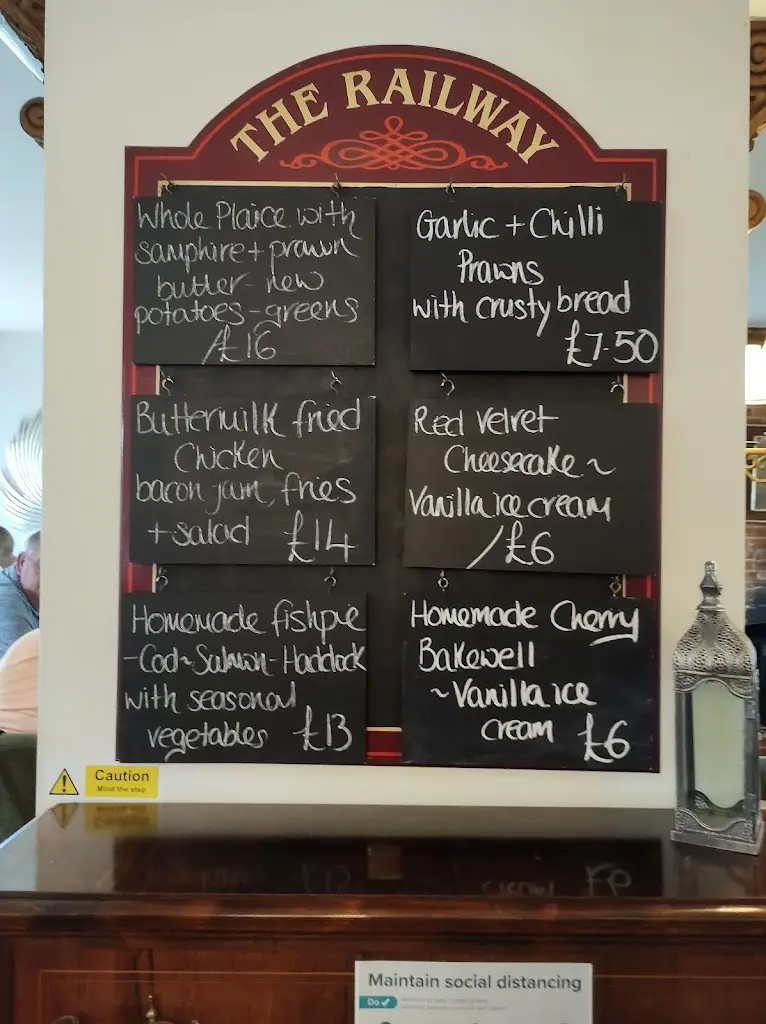 THE RAILWAY
Whole Plaice with
samphire + prawn
butter - new
potatoes - greens
/£16
Garlic + Chilli
Prawns
with crusty bread
£7.50
Buttermilk fried
Chicken
bacon jam, fries
+ salad £14
Red velvet
Cheesecake ~
Vanilla ice cream
/£6
Homemade fishpie
- Cod ~ Salmon - Haddock
with seasonal
vegetables £13
Homemade Cherry
Bakewell
~ Vanilla ice
cream £6
Caution
Mind the step
Maintain social distancing
Do ✓